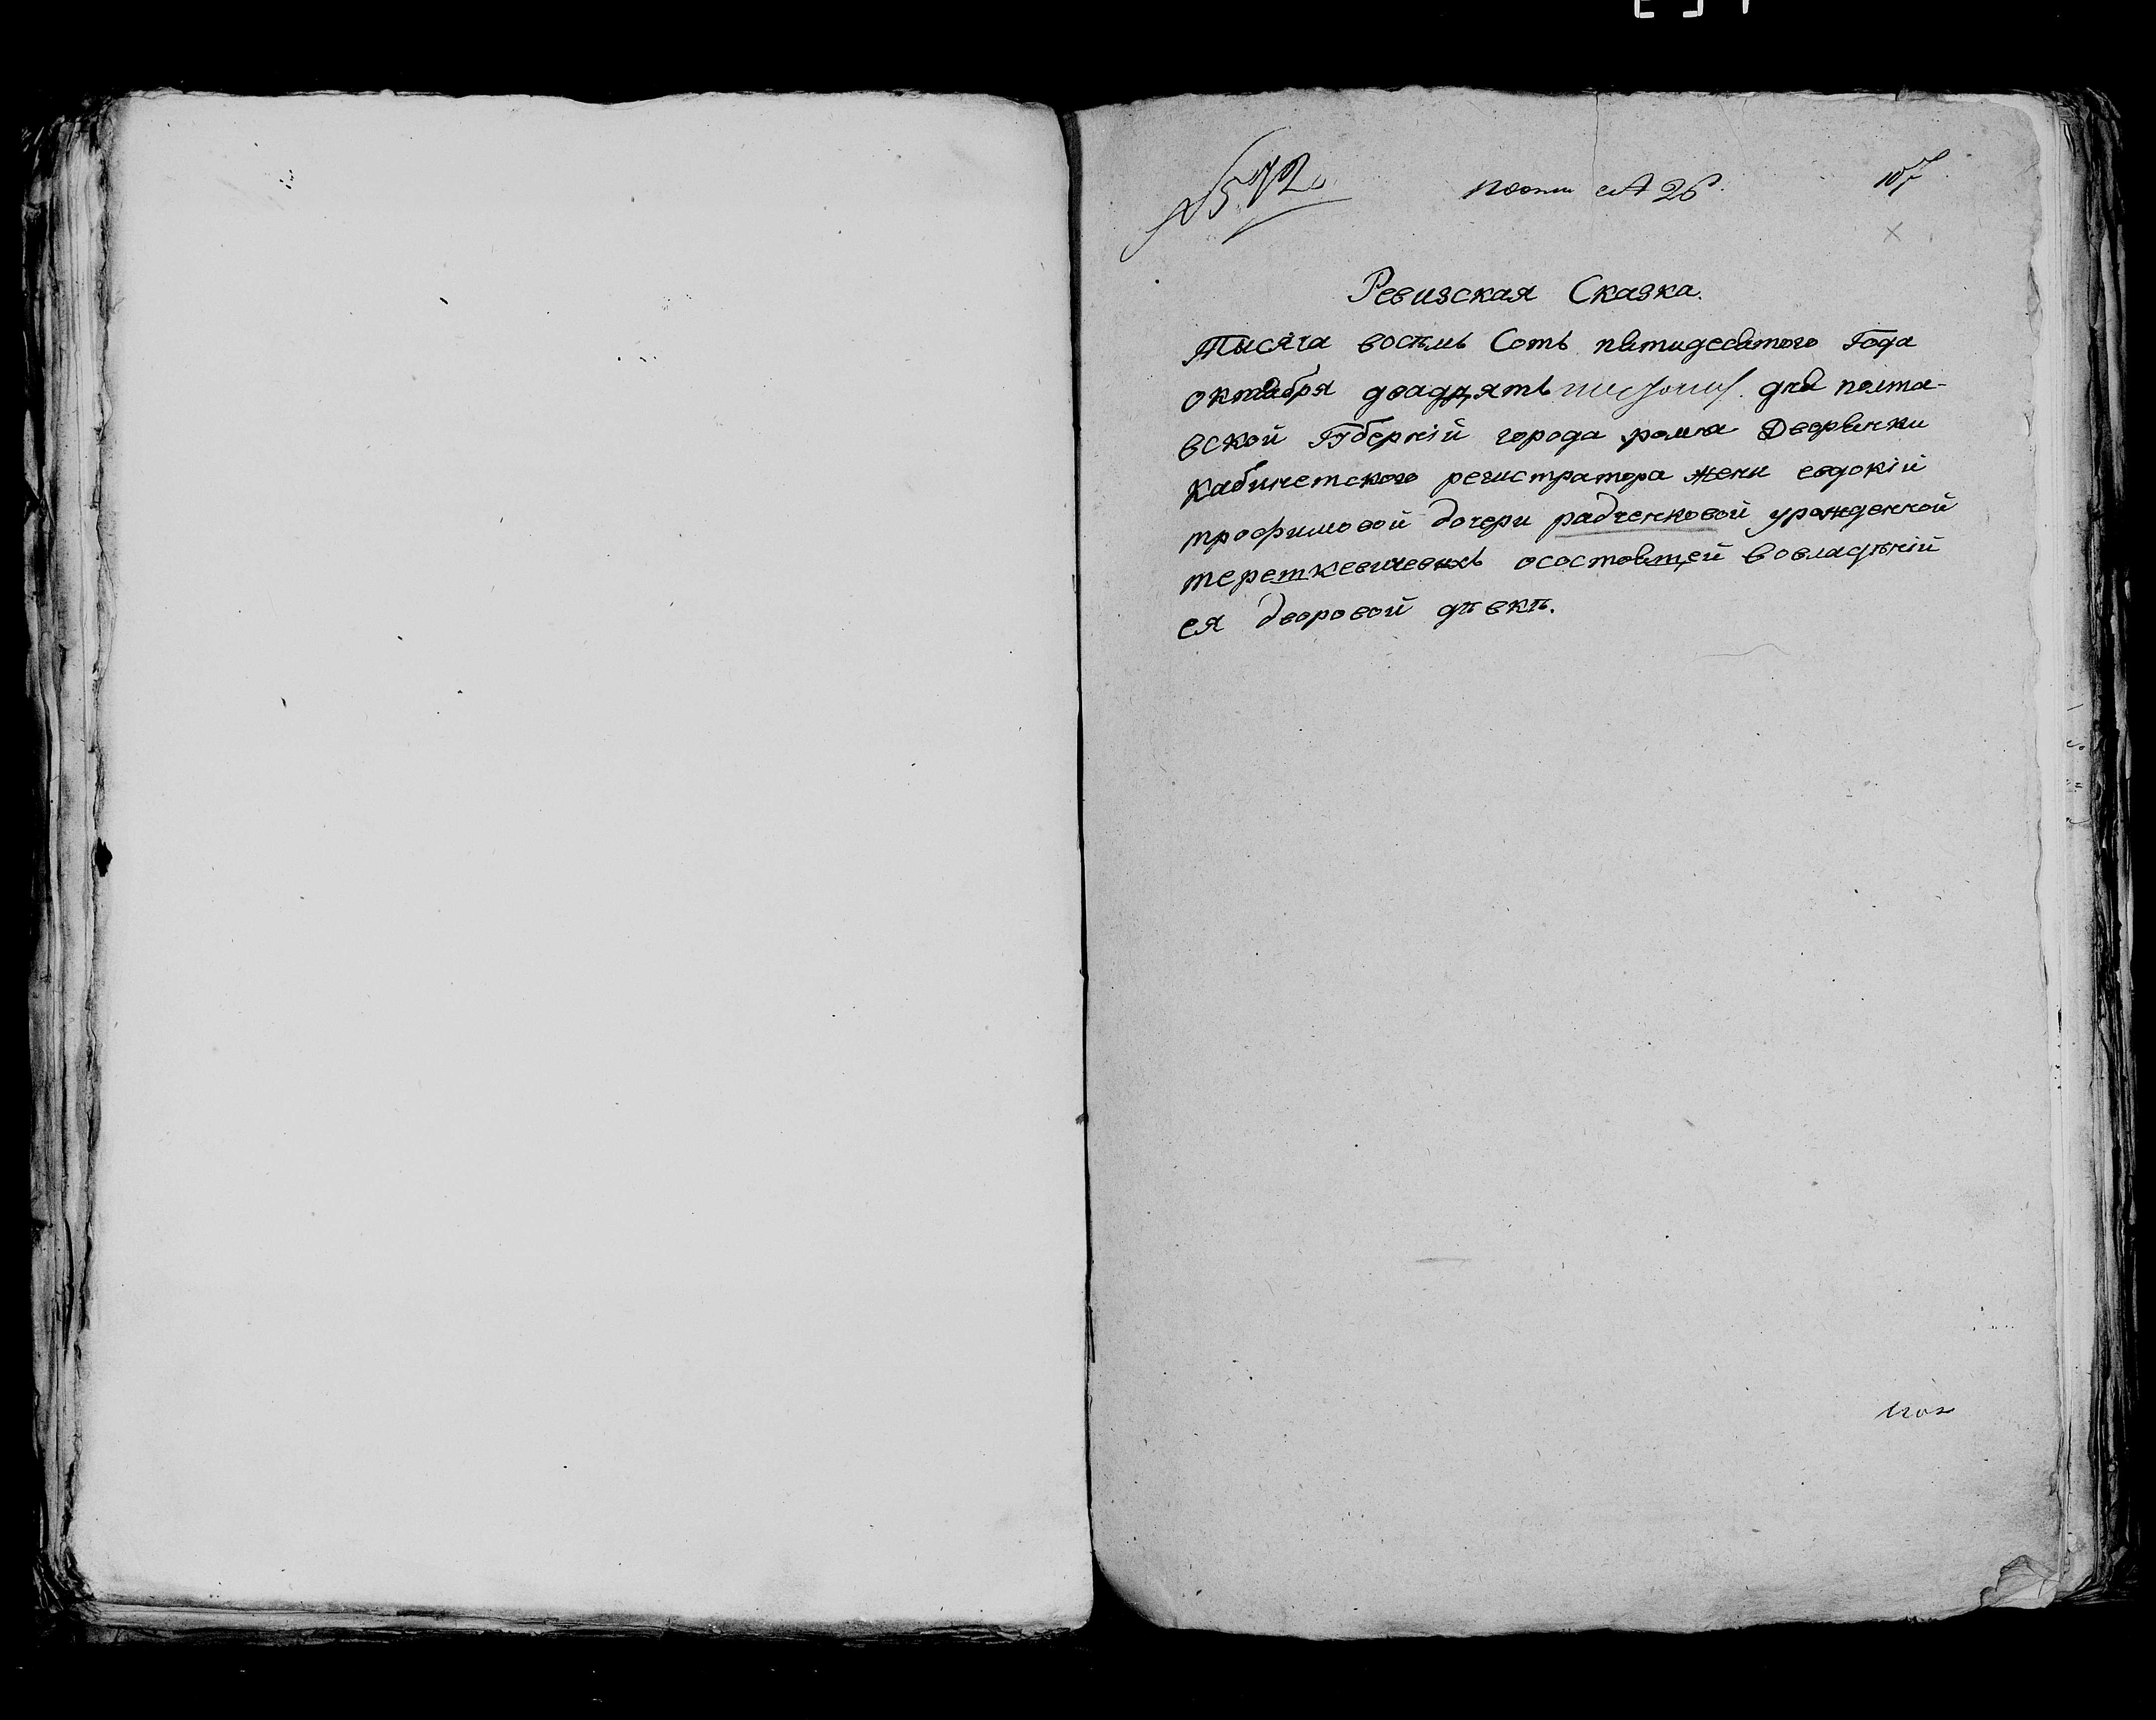 № 572.
107
Ревизская Сказка.
Тысяча восемь Сотъ пятидесятого Года
октября двадцять шестого дня полта-
вской Губерній города ромна Дворянки
Кабинетского регистратора жены евдокій
трофимовой дочери радченковой урожденной
тереткевичевыхъ осостоящей вовладѣній
ея дворовой дѣвкѣ.